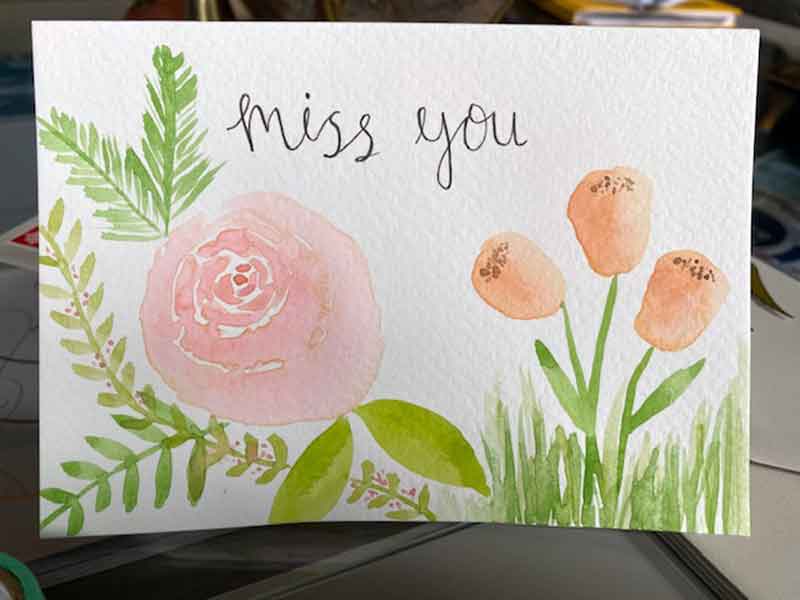 miss you